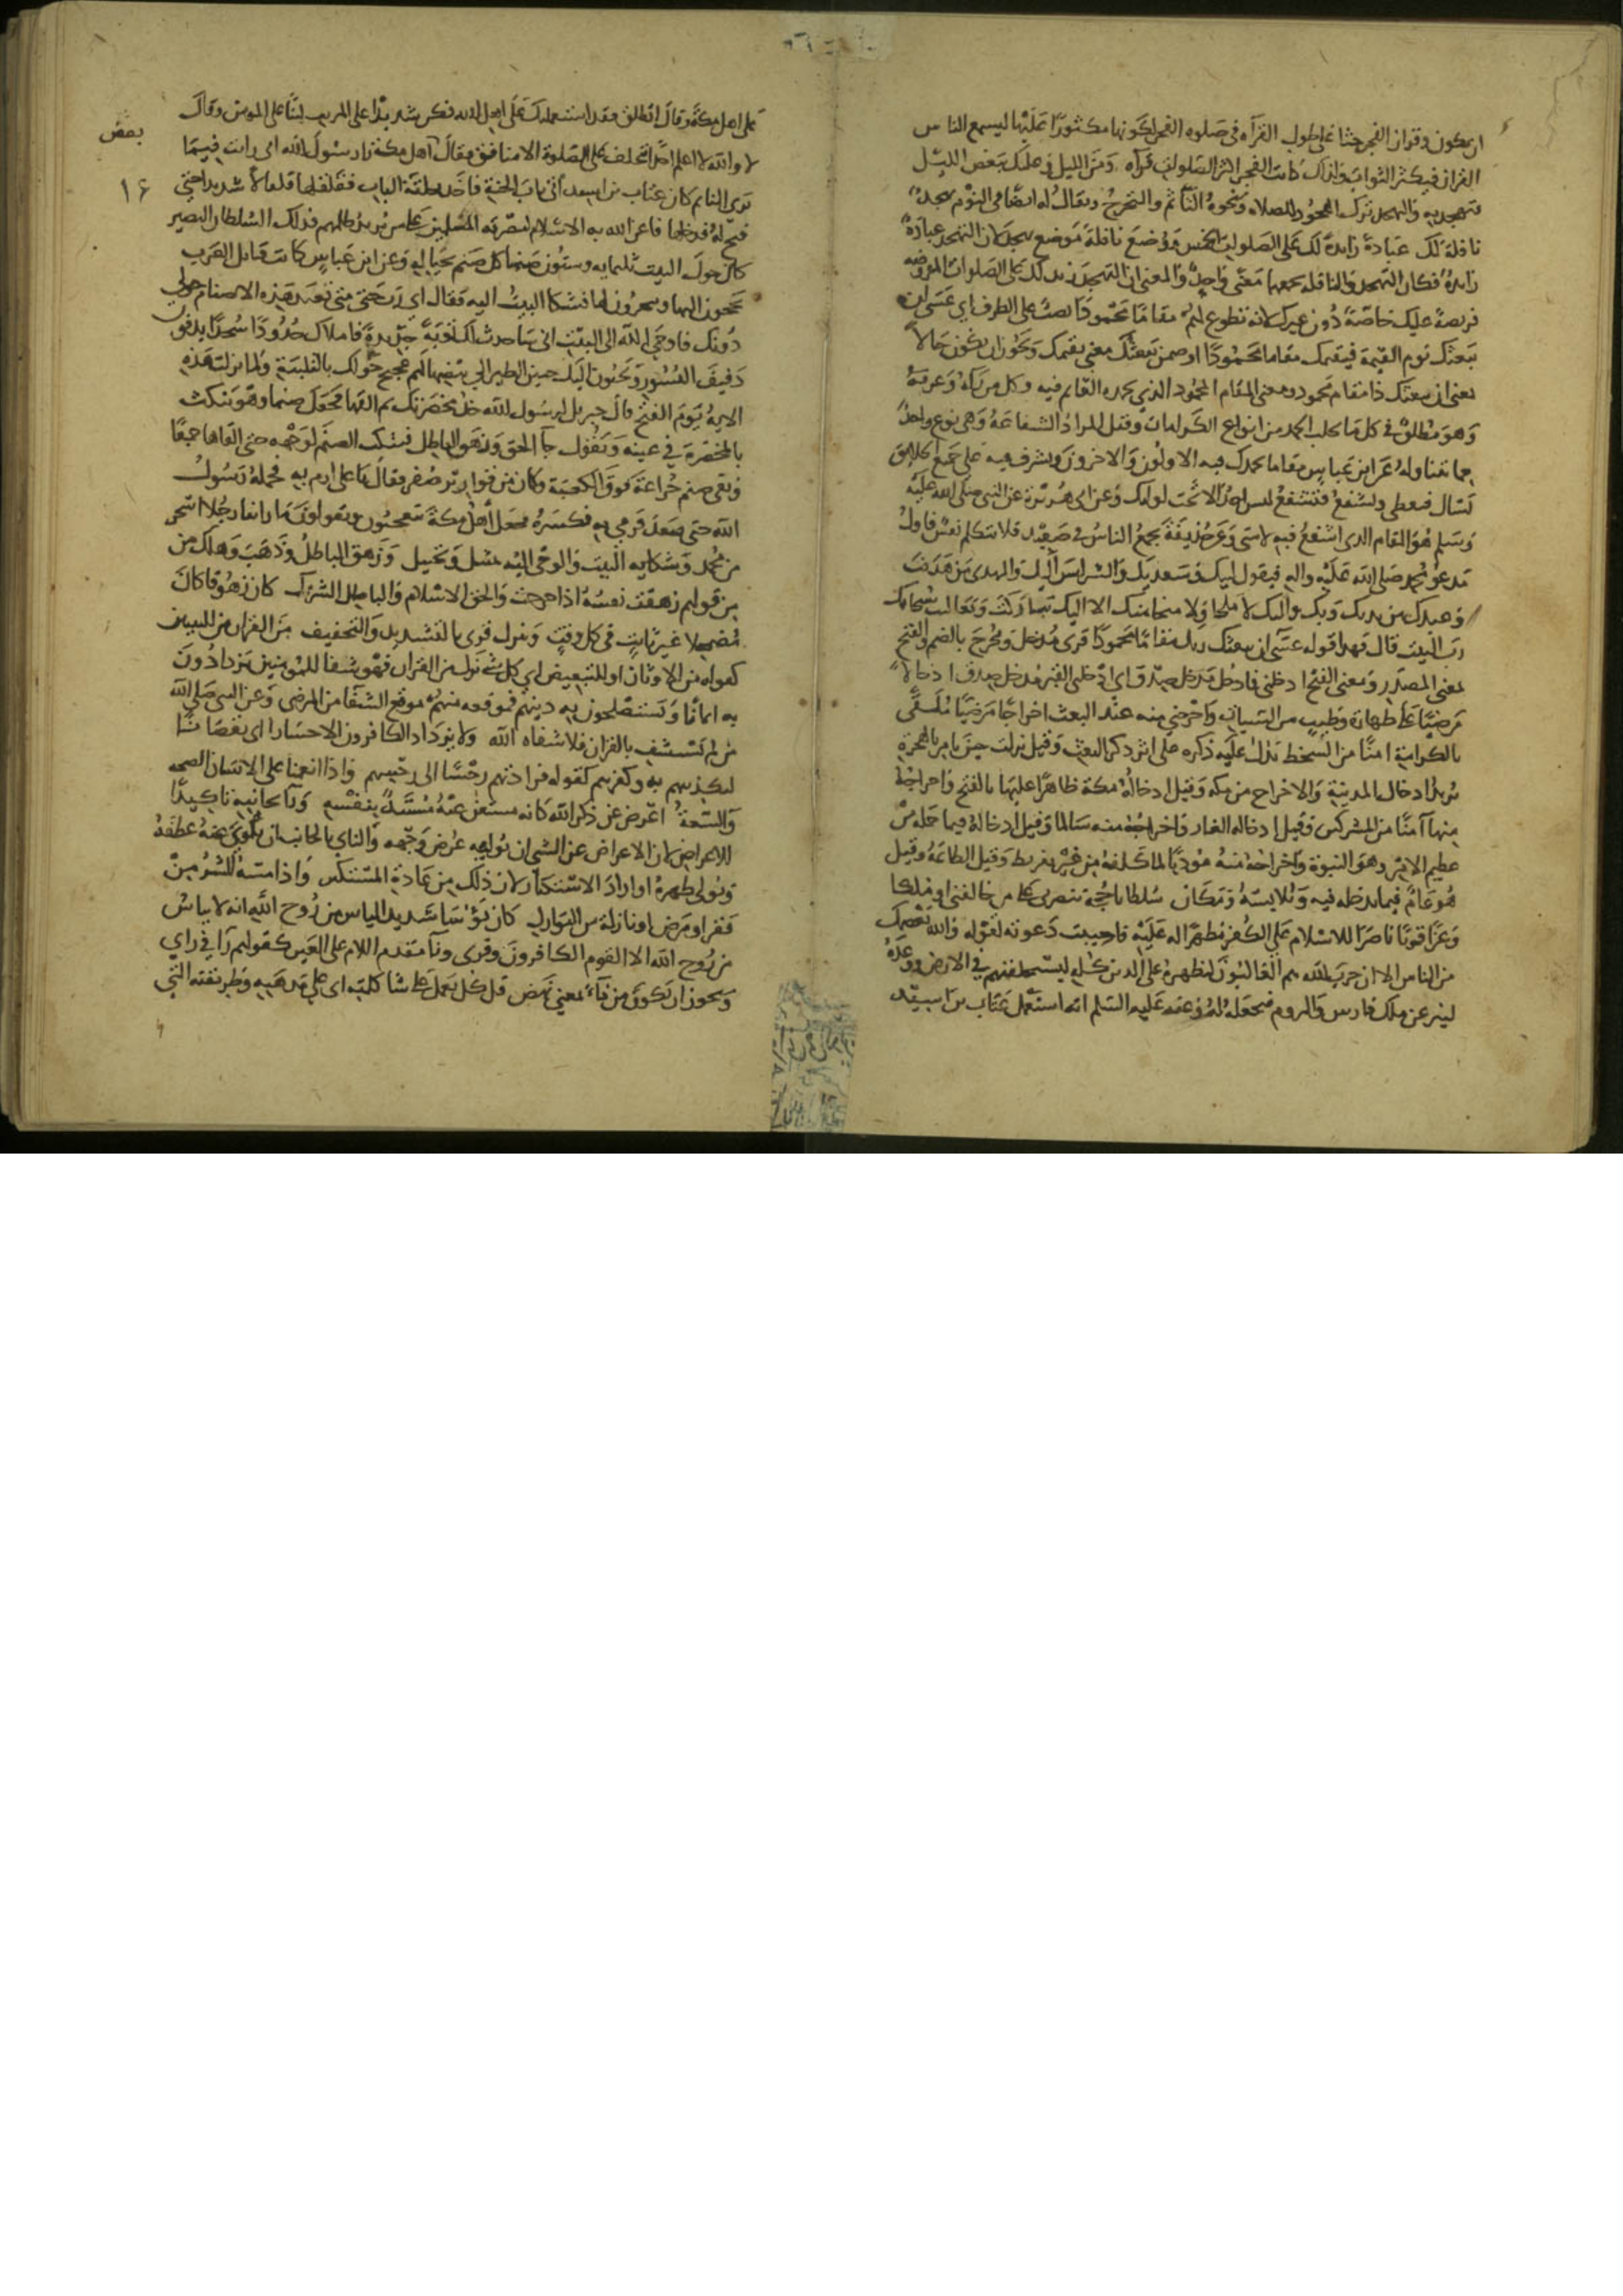 ان يكون وقران الفجر حثا على طول القرآه في صلوه الفجر لكونها مكثورا عليها ليسمع الناس
القران فيكثر الثواب ولذلك كانت الفجر اكثر الصلوات قرآه ومن الليل وعليك بعض الليل
فتهجد به والتهجد ترك الهجود للصلاه ونحوه التأثم والتحرج ويقال له ايضا في النوم تهجد
نافلة لك عبادة زايدة لك على الصلوات الخمس وضع نافلة موضع تهجدا لان التهجد عبادة
زايدة فكان التهجد والنافله يجمعهما معنى واحد والمعنى ان التهجد زيد لك على الصلوات المفروضه
فريضة عليك خاصة دون غيرك لانه تطوع لهم مقاما محمودا نصب على الظرف اي عسى ان
يبعثك يوم القيمة فيقيمك مقاما محمودا او ضمن يبعثك معنى يقيمك ويجوز ان يكون حالا
بمعنى ان يبعثك ذا مقام محمود ومعنى المقام المحمود الذي يحمده القايم فيه وكل من رآه وعرفه
وهو مطلق في كل ما يجلب الحمد من انواع الكرامات وقيل المراد الشفاعة وهي نوع واحد
مما يتناوله وعن ابن عباس مقاما يحمدك فيه الاولون والاخرون وتشرف فيه على جميع الخلايق
تسال فتعطى وتشفع فتشفع ليس احد الا تحت لوايك وعن ابي هريرة عن النبي صلى الله عليه
وسلم هو المقام الذي اشفع فيه لامتي وعن حذيفة يجمع الناس في صعيد فلا تتكلم نفس فاول
مدعو محمد صلى الله عليه واله فيقول لبيك وسعديك والشر ليس اليك والمهدي من هديت
وعبدك بين يديك وبك واليك لا ملجا ولا منجا منك الا اليك تباركت وتعاليت سبحانك
رب البيت قال فهذا قوله عسى ان يبعثك ربك مقاما محمودا قرى مدخل ومخرج بالضم والفتح
بمعنى المصدر ومعنى الفتح ادخلني فادخل مدخل صدق اي ادخلني القبر مدخل صدق ادخالا
مرضيا على طهارة وطيب من السيات واخرجني منه عند البعث اخراجا مرضيا ملقى
بالكرامة امنا من السخط يدل عليه ذكره على اثر ذكر البعث وقيل نزلت حين امر بالهجرة
يريد ادخال المدينة والاخراج من مكه وقيل ادخاله مكة ظاهرا عليها بالفتح واخراجه
منها آمنا من المشركين وقيل ادخاله الغار واخراجه منه سالما وقيل ادخاله فيما حمله من
عظيم الامر وهو النبوة واخراجه منه مؤديا لما كلفه من غير تفريط وقيل الطاعة وقيل
هو عام فيما يدخله فيه ويلابسه ومكان سلطانا حجة تنصرني على من خالفني او ملكا
وعزا قويا ناصرا للاسلام على الكفر مظهرا له عليه فاجيبت دعوته بقوله والله يعصمك
من الناس الا ان حزب الله هم الغالبون ليظهره على الدين كله ليستخلفنهم في الارض ووعده
لينزعن ملك فارس والروم فيجعله له وعنه عليه السلم انه استعمل عتاب بن اسيد
على اهل مكة وقال انطلق فقد استعملتك على اهل الله فكن شديدا على المريب لينا على المومن وقال
لا والله لا اعلم احدا يتخلف على الصلوة الا منافق فقال اهل مكة يا رسول الله اني رايت فيما
بعض
يرى النايم كان عتاب بن اسيد اتى باب الجنة فاخذ بحلقة الباب فقلقلها قلقالا شديدا حتى
١٤
فتح له فدخلها فاعز الله به الاسلام لنصرته المسلمين على من يريد ظلمهم فذلك السلطان النصير
كان حول البيت ثلثمايه وستون صنما كل صنم بحياله وعن ابن عباس كانت قبائل العرب
يحجون اليها وينحرون لها فشكا البيت اليه فقال اي رب حتى متى تعبد هذه الاصنام حولي
دونك فاوحى الله الى البيت اني ساحدث لك نوبة جديدة فاملاك خدودا سجدا يدفون
دفيف النسور ويحنون اليك حنين الطير الى بيضها لهم عجيج حولك بالتلبية ولما نزلت هذه
الاية يوم الفتح قال جبريل لرسول الله خذ مخصرتك ثم القها فجعل صنما وهو ينكت
بالمخصرة في عينه ويقول جآ الحق وزهق الباطل فينكب الصنم لوجهه حتى القاها جميعا
وبقي صنم خزاعة فوق الكعبة وكان من قوارير صفر فقال يا علي ارم به فحمله رسول
الله حتى صعد فرمى به فكسره فجعل اهل مكة يتعجبون ويقولون ما راينا رجلا اسحر
من محمد وشكايه البيت والوحي اليه تمثيل وتخييل وزهق الباطل وذهب وهلك من
من قولهم زهقت نفسه اذا خرجت والحق الاسلام والباطل الشرك كان زهوقا كان
مضمحلا غير ثابت في كل وقت وننزل قرى بالتشديد والتخفيف من القران من للتبيين
كقوله من الاوثان او للتبعيض اي كل شي نزل من القران فهو شفا للمومنين يزدادون
به ايمانا ويستصلحون به دينهم فموقعه منهم موقع الشفا من المرضى وعن النبي صلى الله
من لم يستشف بالقران فلا شفاه الله ولا يزداد الكافرون الا خسارا اي نقصانا
لتكذيبهم به وكفرهم كقوله فزادتهم رجسا الى رجسهم واذا انعمنا على الانسان الصحه
والسعة اعرض عن ذكر الله كانه مستغن عنه مستبد بنفسه ونآ بجانبه تاكيدا
للاعراض لان الاعراض عن الشي ان يوليه عرض وجهه والناي بالجانب ان يلوي عنه عطفه
ويولي ظهره او اراد الاستكبار لان ذلك من عادة المستكبر واذا مسه الشر من
فقر او مرض او نازلة من النوازل كان يؤسا شديد الياس من روح الله انه لا يياس
من روح الله الا القوم الكافرون وقرى ونآ متقدم اللام على العين كقولهم رآ في راي
ويجوز ان تكون من نآء بمعنى نهض قل كل يعمل على شاكلته اي على مذهبه وطريقته التي